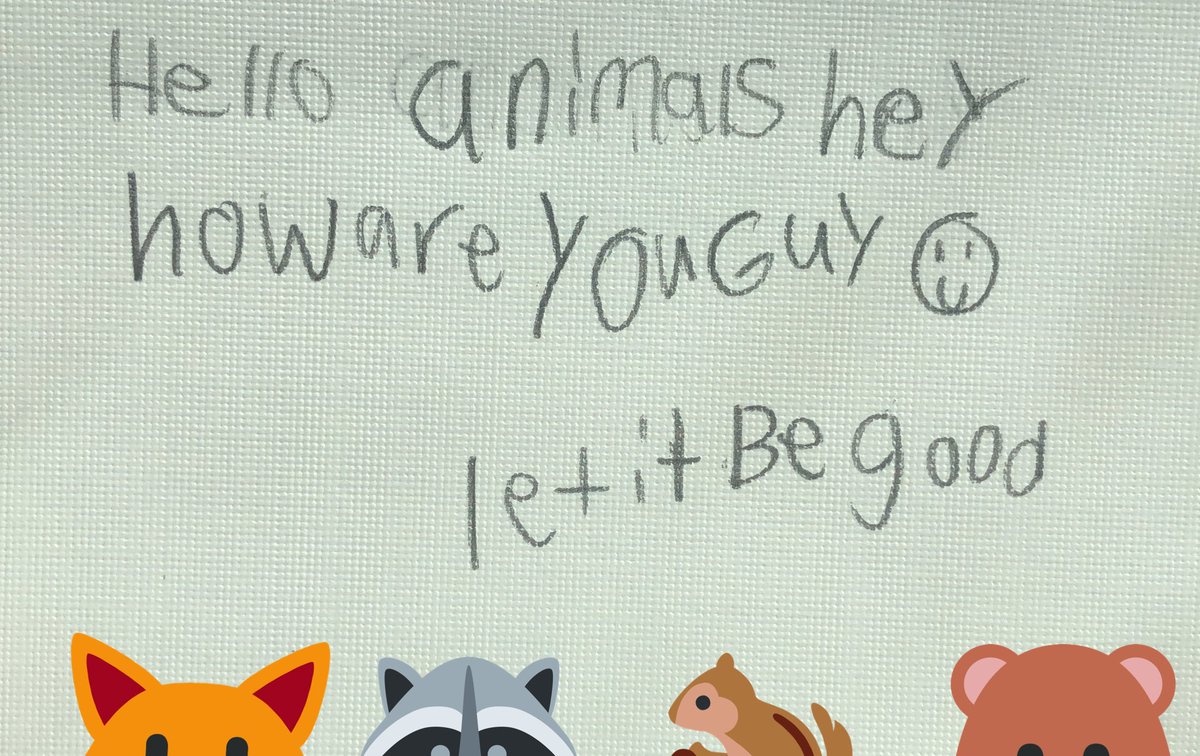 Hello animals hey
how are you Guy
let it Be good